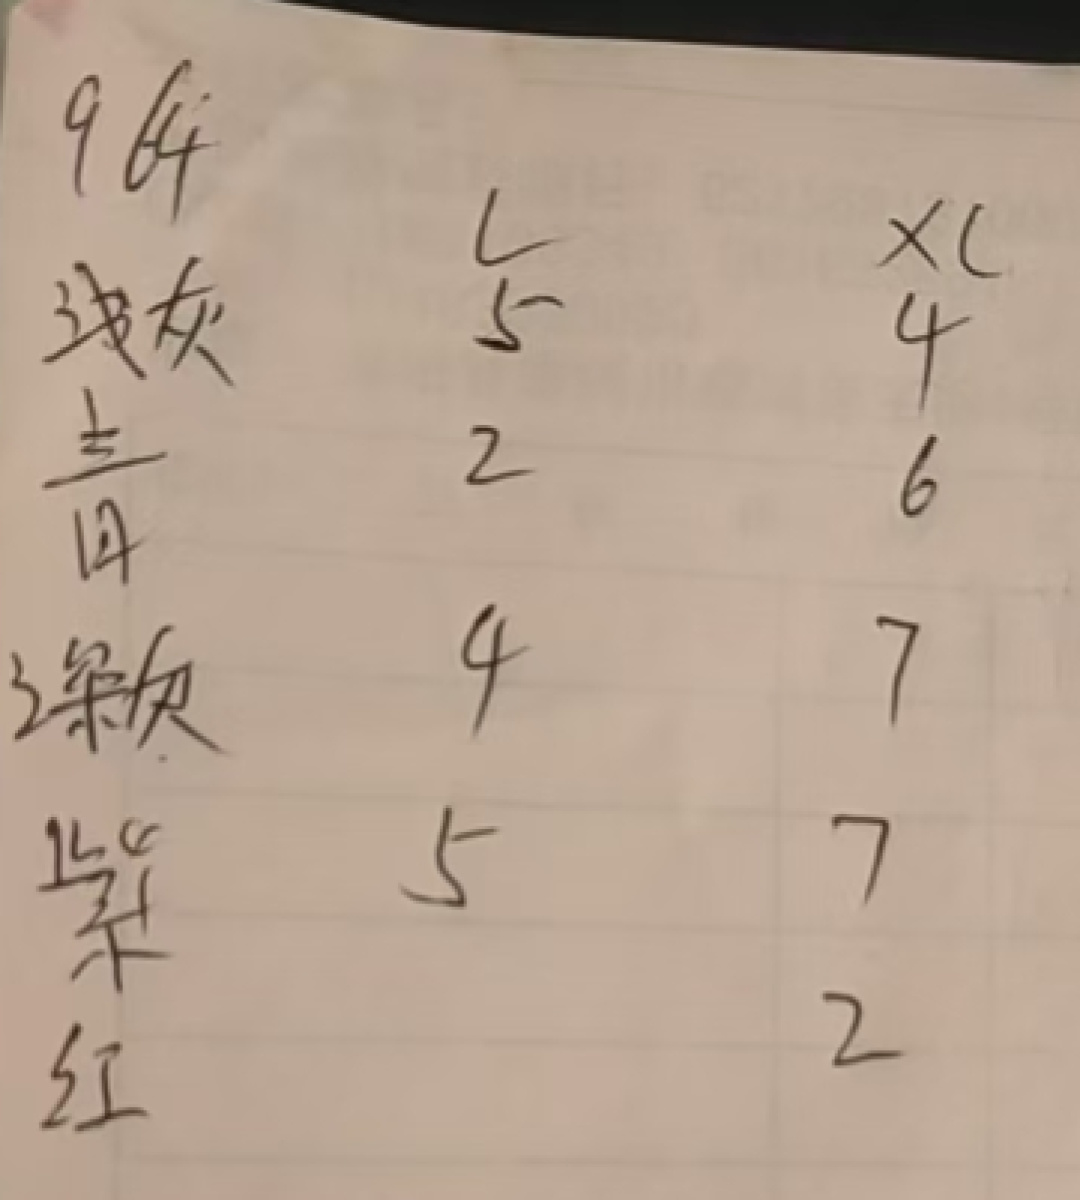 964
L XL
浅灰 5 4
青 2 6
深灰 4 7
紫 5 7
红 2